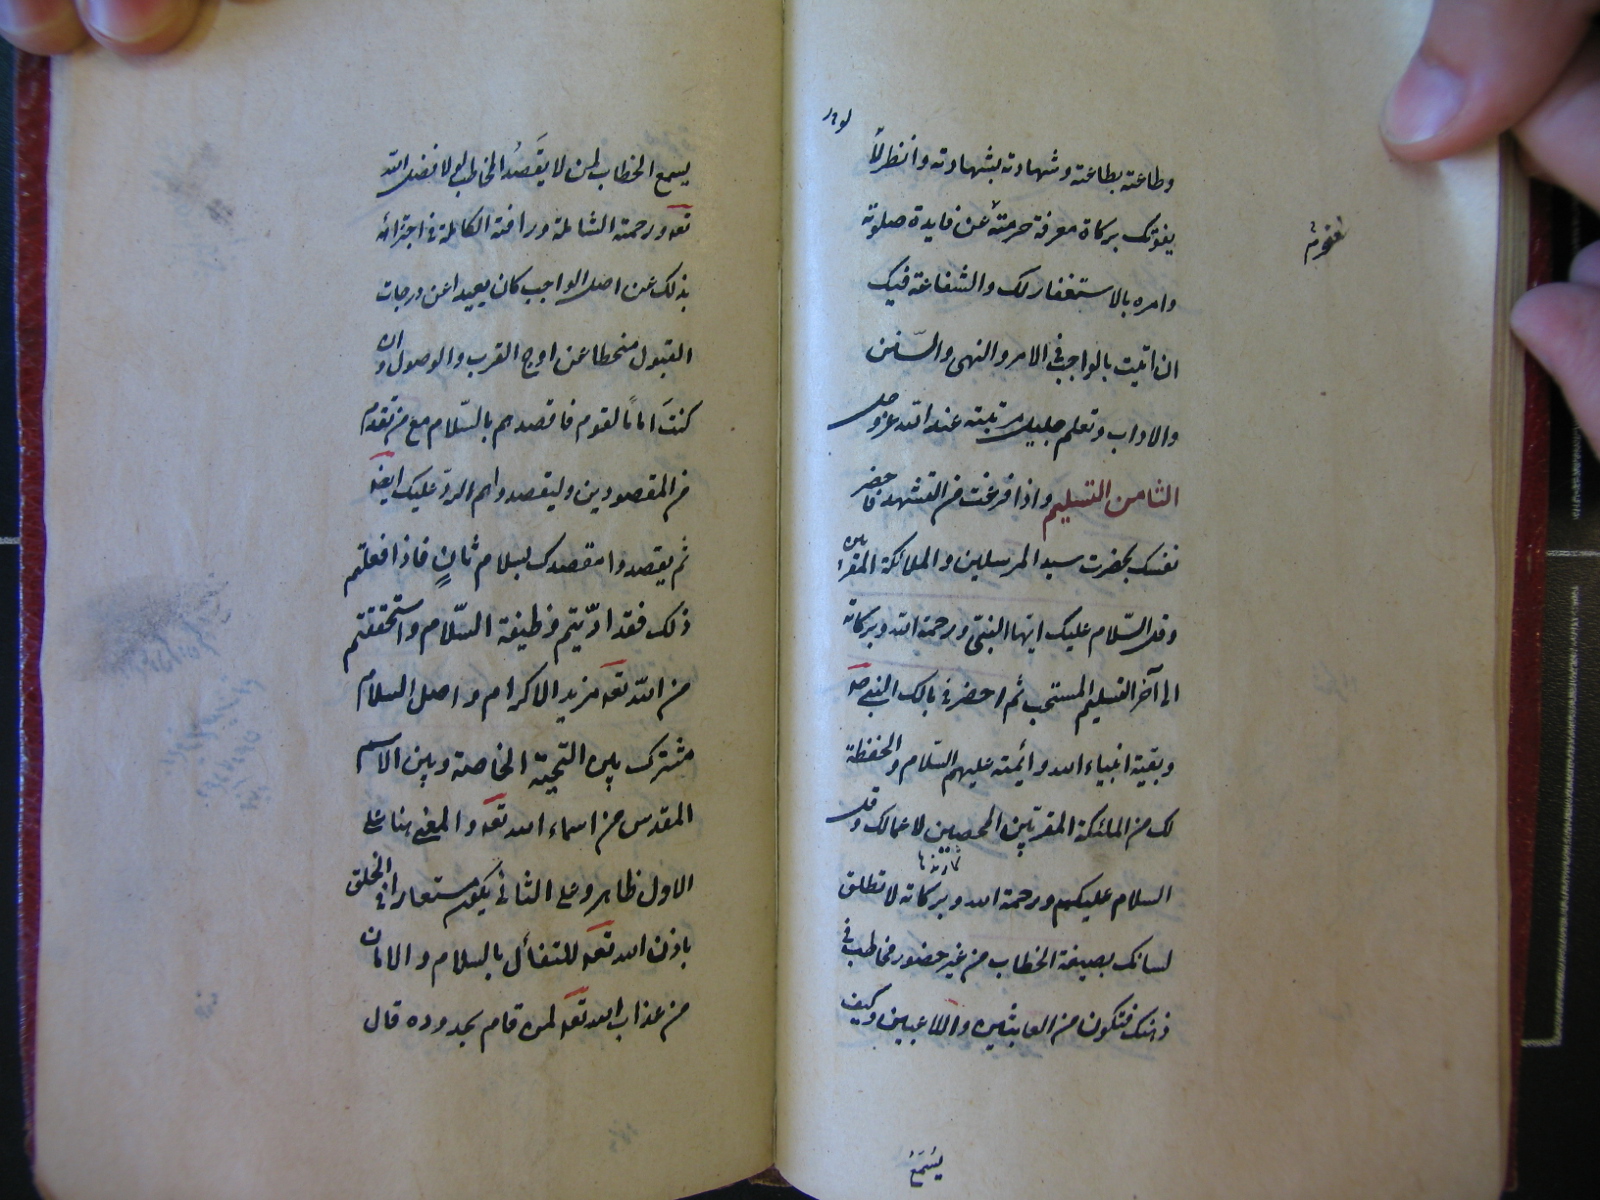 وطاعته بطاعته وشهادته بشهادته وانظر لا
يفوتك بركاة معرفة حرمته عن فايدة صلوته
وامره بالاستغفار لك والشفاعة فيك
ان اتيت بالواجب في الامر والنهي والسّنن
والاداب وتعلم جليل مرتبته عند الله عزوجل
الثامن التسليم واذا فرغت من التشهد فاحضر
نفسك بحضرت سيد المرسلين والملائكة المقربين
وقل السّلام عليك ايها النبيّ ورحمة الله وبركاته
الى آخر التسليم المستحب ثم احضر في بالك النبي صه
وبقية انبياء الله وأئمته عليهم السّلام والحفظة
لك من الملئكة المقربين المحصين لاعمالك وقل
السلام عليكم ورحمة الله وبركاته لا تطلق
لسانك بصيغة الخطاب من غير حضور مخاطب في
ذهنك فتكون من العابثين واللاعبين وكيف
يُسْمَعُ
يسمع الخطاب لمن لا يقَصدُ المخاطب لولا فضل الله
تعه ورحمته الشاملة ورافته الكاملة في اجتزائه
بذلك عن اصل الواجب كان بعيدا عن درجات
القبول منحطا عن اوج القرب والوصول وان
كنتَ امامًا لقوم فاقصدهم بالسّلام مع من تقدم
من المقصودين وليقصدوا هم الردّ عليك ايضه
ثم يقصدوا مقصدك بسلام ثانٍ فاذا فعلتم
ذلك فقد ادّيتم وظيفة السّلام واستحققتم
من اللّه تعه مزيد الاكرام واصل السلام
مشترك بين التّحيّة الخاصة وبين الاسم
المقدس من اسماء الله تعه والمعنى هنا على
الاول ظاهر وعلى الثاني يكون مستعارا في الخلق
باذن الله تعه للتفأل بالسلام والامان
من عذاب الله تعه لمن قام بحدوده قال